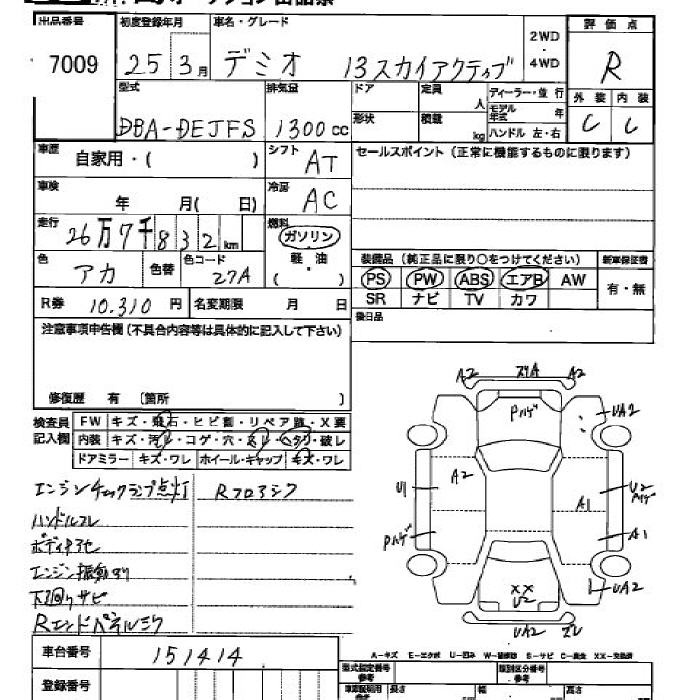 出品番号 初度登録年月 車名・グレード 評価点
7009 25 3月 デミオ 13スカイアクティブ 2WD ・ 4WD R
型式 排気量 ドア 定員 人 ディーラー・並行 外装 内装
DBA-DEJFS 1300cc 形状 積載 kg モデル年式 年 ハンドル 左・右 C C
車歴 自家用・( ) シフト AT セールスポイント (正常に機能するものに限ります)
車検 年 月( 日) 冷房 AC
走行 26万7千832km 燃料 ガソリン
色 アカ 色替 色コード 27A 軽・油 ( ・ ) 装備品 (純正品に限り○をつけてください) 新車保証書
PS PW ABS エアB AW 有・無
R券 10.310円 名変期限 月 日 SR ナビ TV カワ
注意事項申告欄 (不具合内容等は具体的に記入して下さい) 後日品
修復歴 有 〔箇所 〕
検査員 FW キズ・飛石・ヒビ割・リペア跡・X要
記入欄 内装 キズ・汚レ・コゲ・穴・スレ・ヘタリ・破レ
ドアミラー キズ・ワレ ホイール・キャップ キズ・ワレ
A2 スリA A2
Pハゲ UA2
A2
U1 A1 U2 Pハゲ
Pハゲ A1
XX U2 UA2
UA2 ズレ
エンジンチェックランプ点灯 Rフロアシワ
ハンドルスレ
エンジン振動有り
下廻りサビ
Rエンドパネル
A-キズ E-エクボ U-凹み W-補修跡 S-サビ C-腐食 XX-交換済
車台番号 151414 型式指定番号 参考 類別区分番号 参考
登録番号 長さ 幅 高さ